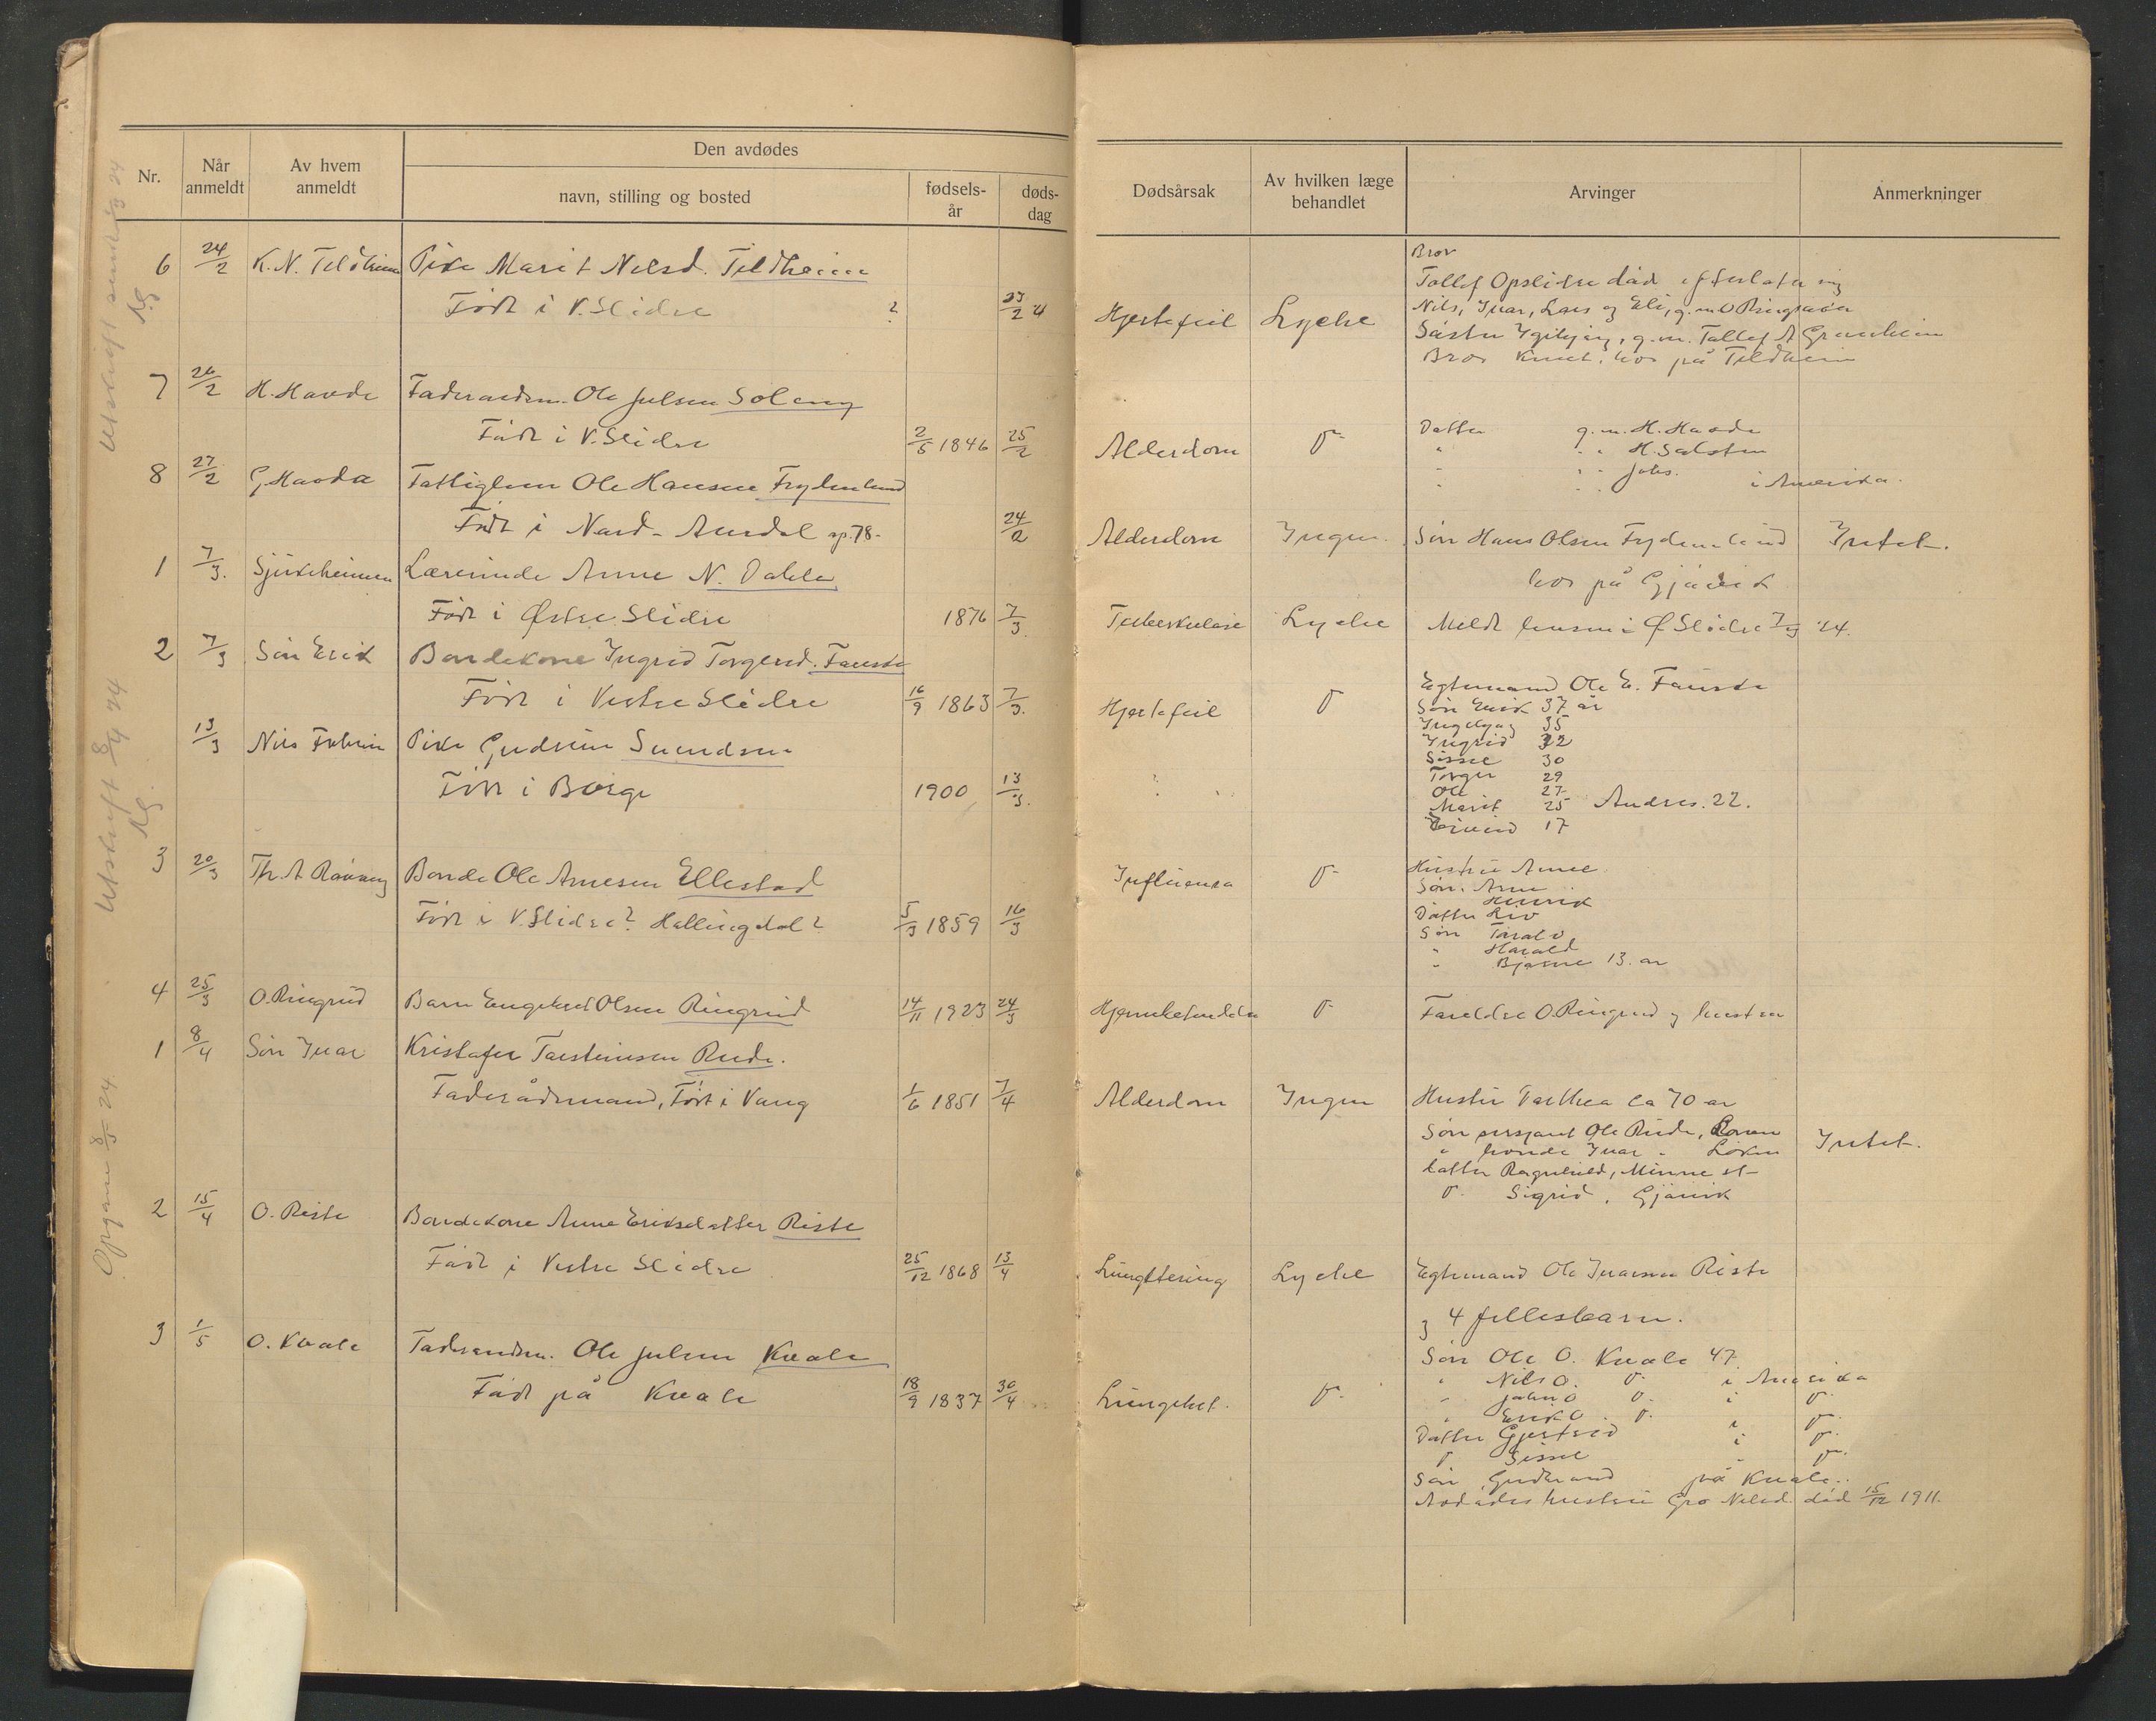 Den avdødes
Nr. Når anmeldt Av hvem anmeldt navn, stilling og bosted fødsels-år døds-dag
Dødsårsak Av hvilken læge behandlet Arvinger Anmerkninger
6 24/2 K. N. Feldheim Pike Marit Nilsd. Feldheim
Født i V. Slidre ? 23/2 24 Hjertefeil Lyche
Bror
Tollef Opslidre død efterlater sig
Nils, Ivar, Lars og Eli, g.m. O Ringsaker
Søster Ingebjørg, g.m. Tollef A Granheim
Bror Knut, bor på Feldheim
7 26/2 H. Havde Føderaadsm. Ole Julsen Soleng
Født i V. Slidre 2/5 1846 25/2 Alderdom d
Datter g.m. H. Havde
" " " H. Salsten
" " " Johs. i Amerika.
8 27/2 G Havda Fattiglem Ole Hansen Frydenlund
Født i Nord-Aurdal op. 78- 24/2 Alderdom Ingen. Søn Hans Olsen Frydenlund Intet.
bor på Gjøvik
1 7/3. Sjukeheimen Lærerinde Anne N. Dahle
Født i Østre Slidre 1876 7/3. Tuberkulose Lyche Meldt lensm i Ø Slidre 7/3 24.
2 7/3 Søn Erik Bondekone Ingrid Torgersd. Fauske
Født i Vestre Slidre 16/9 1863 7/3. Hjertefeil d
Egtemand Ole E. Fauske
Søn Erik 37 år
Ingebjørg 35
Ingrid 32
Sissel 30
Torger 29
Ole 27
Marit 25 Andres. 22.
Eivind 17
13/3 Nils Pike Gudrun Svendsen
Født i Borge 1900 13/3.
3 20/3 Th. A Røvang Bonde Ole Arnesen Ellestad
Født i V. Slidre? Hallingdal? 5/3 1859 16/3 Influensa d
Hustru Anne
Søn. Arne
" Henrik
Datter Liv
Søn Torald
" Harald
" Bjarne 13. år
4 25/3 O. Ringrud Barn Engebret Olsen Ringrud 14/11 1923 24/3 Hjernebetendelse d Foreldre O. Ringrud og hustru
1 8/4 Søn Ivar Kristofer Torsteinsen Rude.
Føderådsmand, Født i Vang 1/6 1851 7/4 Alderdom Ingen Hustru Torthea ca 70 år
Søn sersjant Ole Rude, Intet.
" bonde Ivar " Løken
datter Ragnhild, Minne st-
d. Sigrid, Gjøvik
2 15/4 O. Riste Bondekone Anne Eriksdatter Riste
Født i Vestre Slidre 25/12 1868 13/4 Lungetæring Lyche Egtemand Ole Ivarsen Riste
og 4 fellesbarn.
3 1/5 O. Kvale Føderaadsm. Ole Julsen Kvale
Født på Kvale 18/9 1837 30/4 Lungebet. d
Søn Ole O. Kvale 47.
" Nils O. d. i Amerika
" John O d. i d.
" Erik O. d. i d.
Datter Gjertrud i d.
d Sissel " d.
Søn Gudbrand på Kvale.
Avdødes hustru Gro Nilsd. død 15/12 1911.
Utskrift sendt 3/3 24
NG
Utskrift 8/4 24
NG.
Opgave 8/5 24.